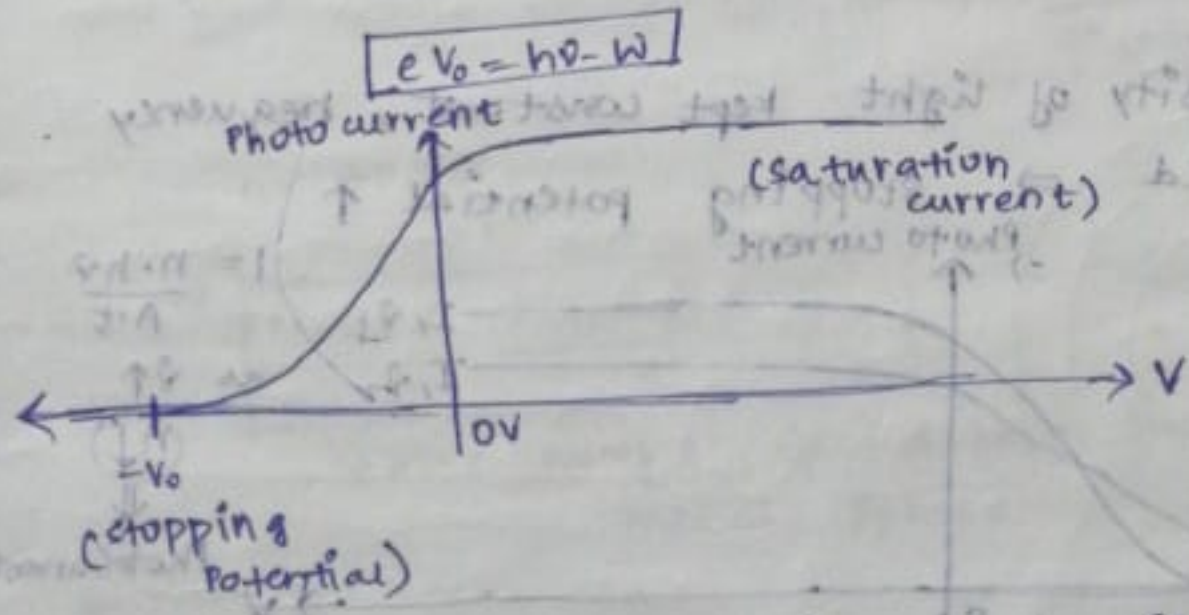 eV₀ = hν - W
Photo current
(saturation
current)
V
0V
-V₀
(stopping
Potential)